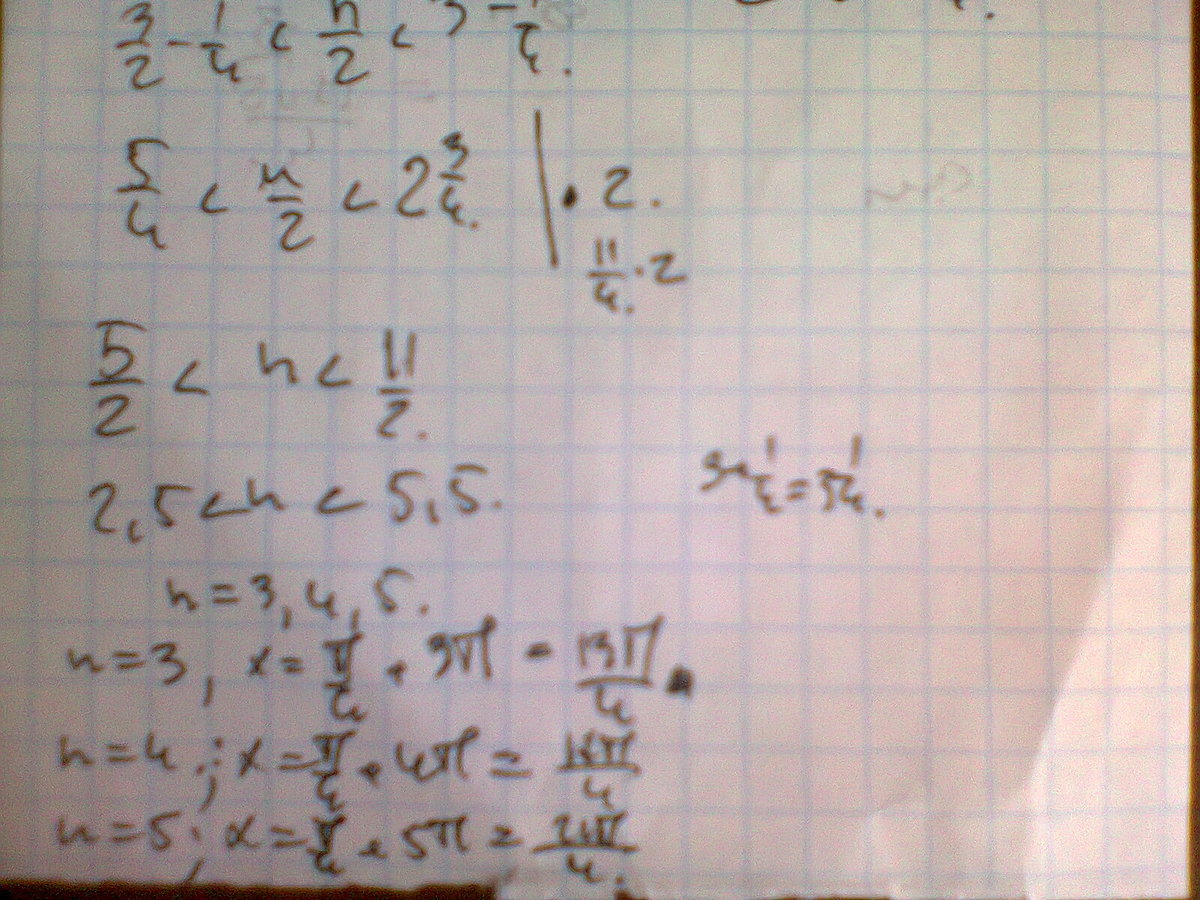 3/2 - 1/4 < n/2 < 3 - 1/4.
5/4 < n/2 < 2 3/4. | · 2.
11/4 · 2
5/2 < n < 11/2.
2,5 < n < 5,5.
= 5 1/4.
n = 3, 4, 5.
n = 3, x = π/4 + 3π = 13π/4.
n = 4; x = π/4 + 4π =
n = 5; x = π/4 + 5π = 21π/4.